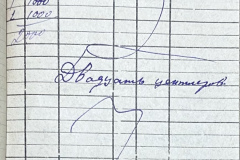 1000
1000
2000
Двадцать центнеров